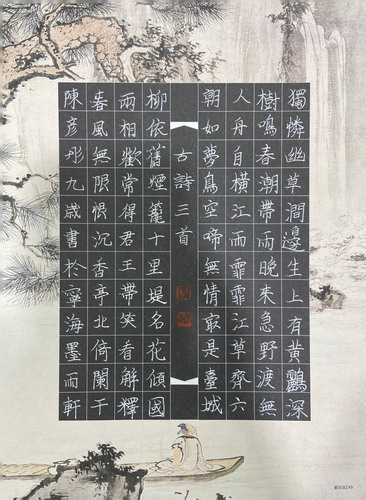 獨憐幽草澗邊生上有黃鸝深
樹鳴春潮帶雨晚來急野渡無
人舟自橫江雨霏霏江草齊六
朝如夢鳥空啼無情最是臺城
古詩三首
柳依舊煙籠十里堤名花傾國
兩相歡常得君王帶笑看解釋
春風無限恨沉香亭北倚闌干
陳彥彤九歲書於寧海墨雨軒